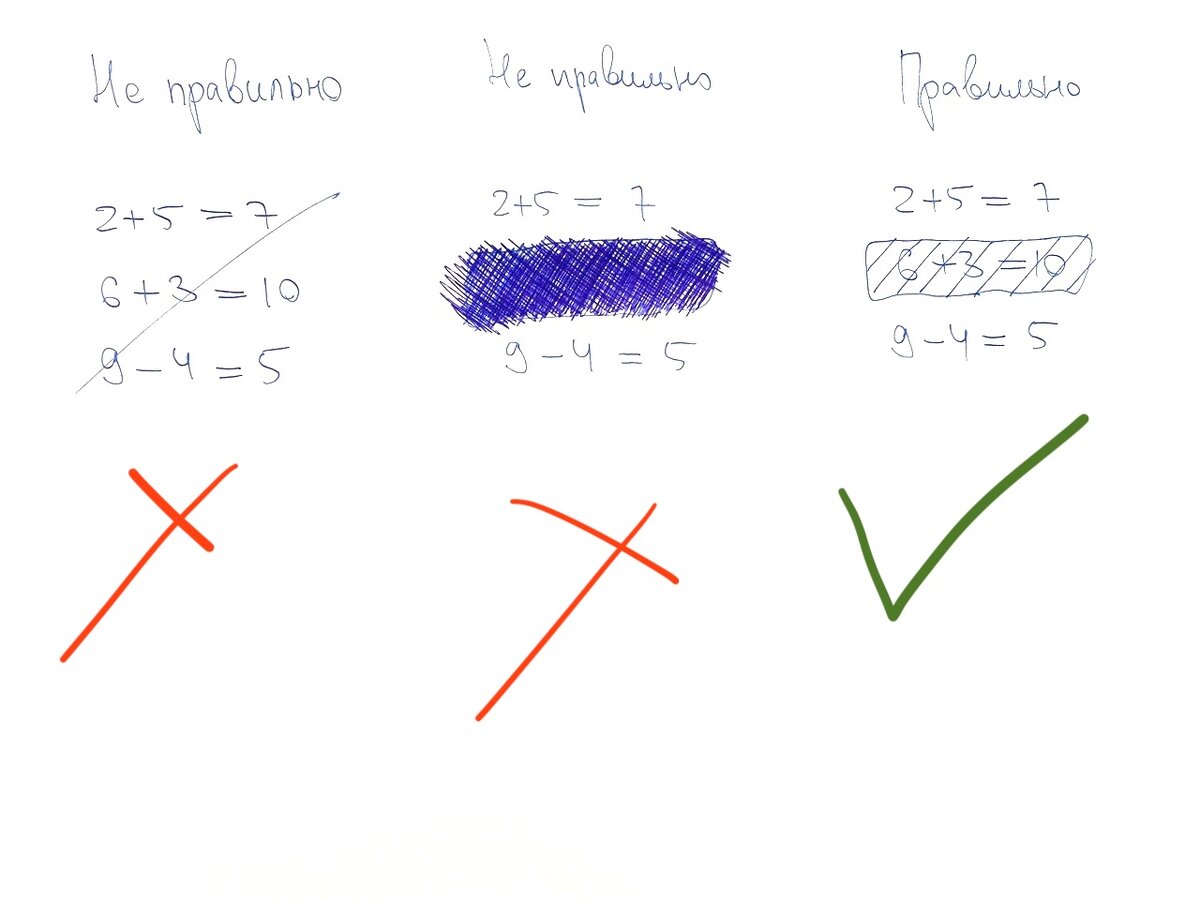 Не правильно
2+5 = 7
6+3 = 10
9-4 = 5
Не правильно
2+5 = 7
9-4 = 5
Правильно
2+5 = 7
6+3=10
9-4= 5